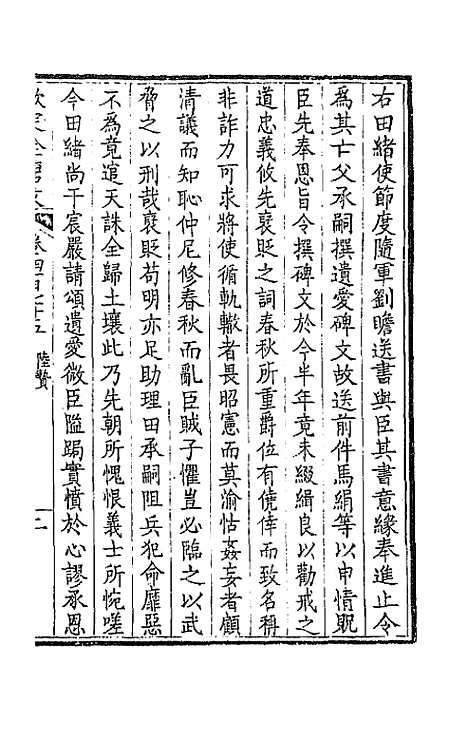 右田緒使節度隨軍劉瞻送書與臣其書意緣奉進止令
為其亡父承嗣撰遺愛碑文故送前件馬絹等以申情貺
臣先奉恩旨令撰碑文於今半年竟未綴緝良以勸戒之
道忠義攸先褒貶之詞春秋所重爵位有僥倖而致名稱
非詐力可求將使循軌轍者畏昭憲而莫渝怙姦妄者顧
清議而知恥仲尼修春秋而亂臣賊子懼豈必臨之以武
脅之以刑哉褒貶苟明亦足助理田承嗣阻兵犯命靡惡
不為竟逭天誅全歸土壤此乃先朝所愧恨義士所惋嗟
今田緒尚干宸嚴請頌遺愛微臣隘跼實憤於心謬承恩
欽定全唐文 卷四百七十五 陸贄 二